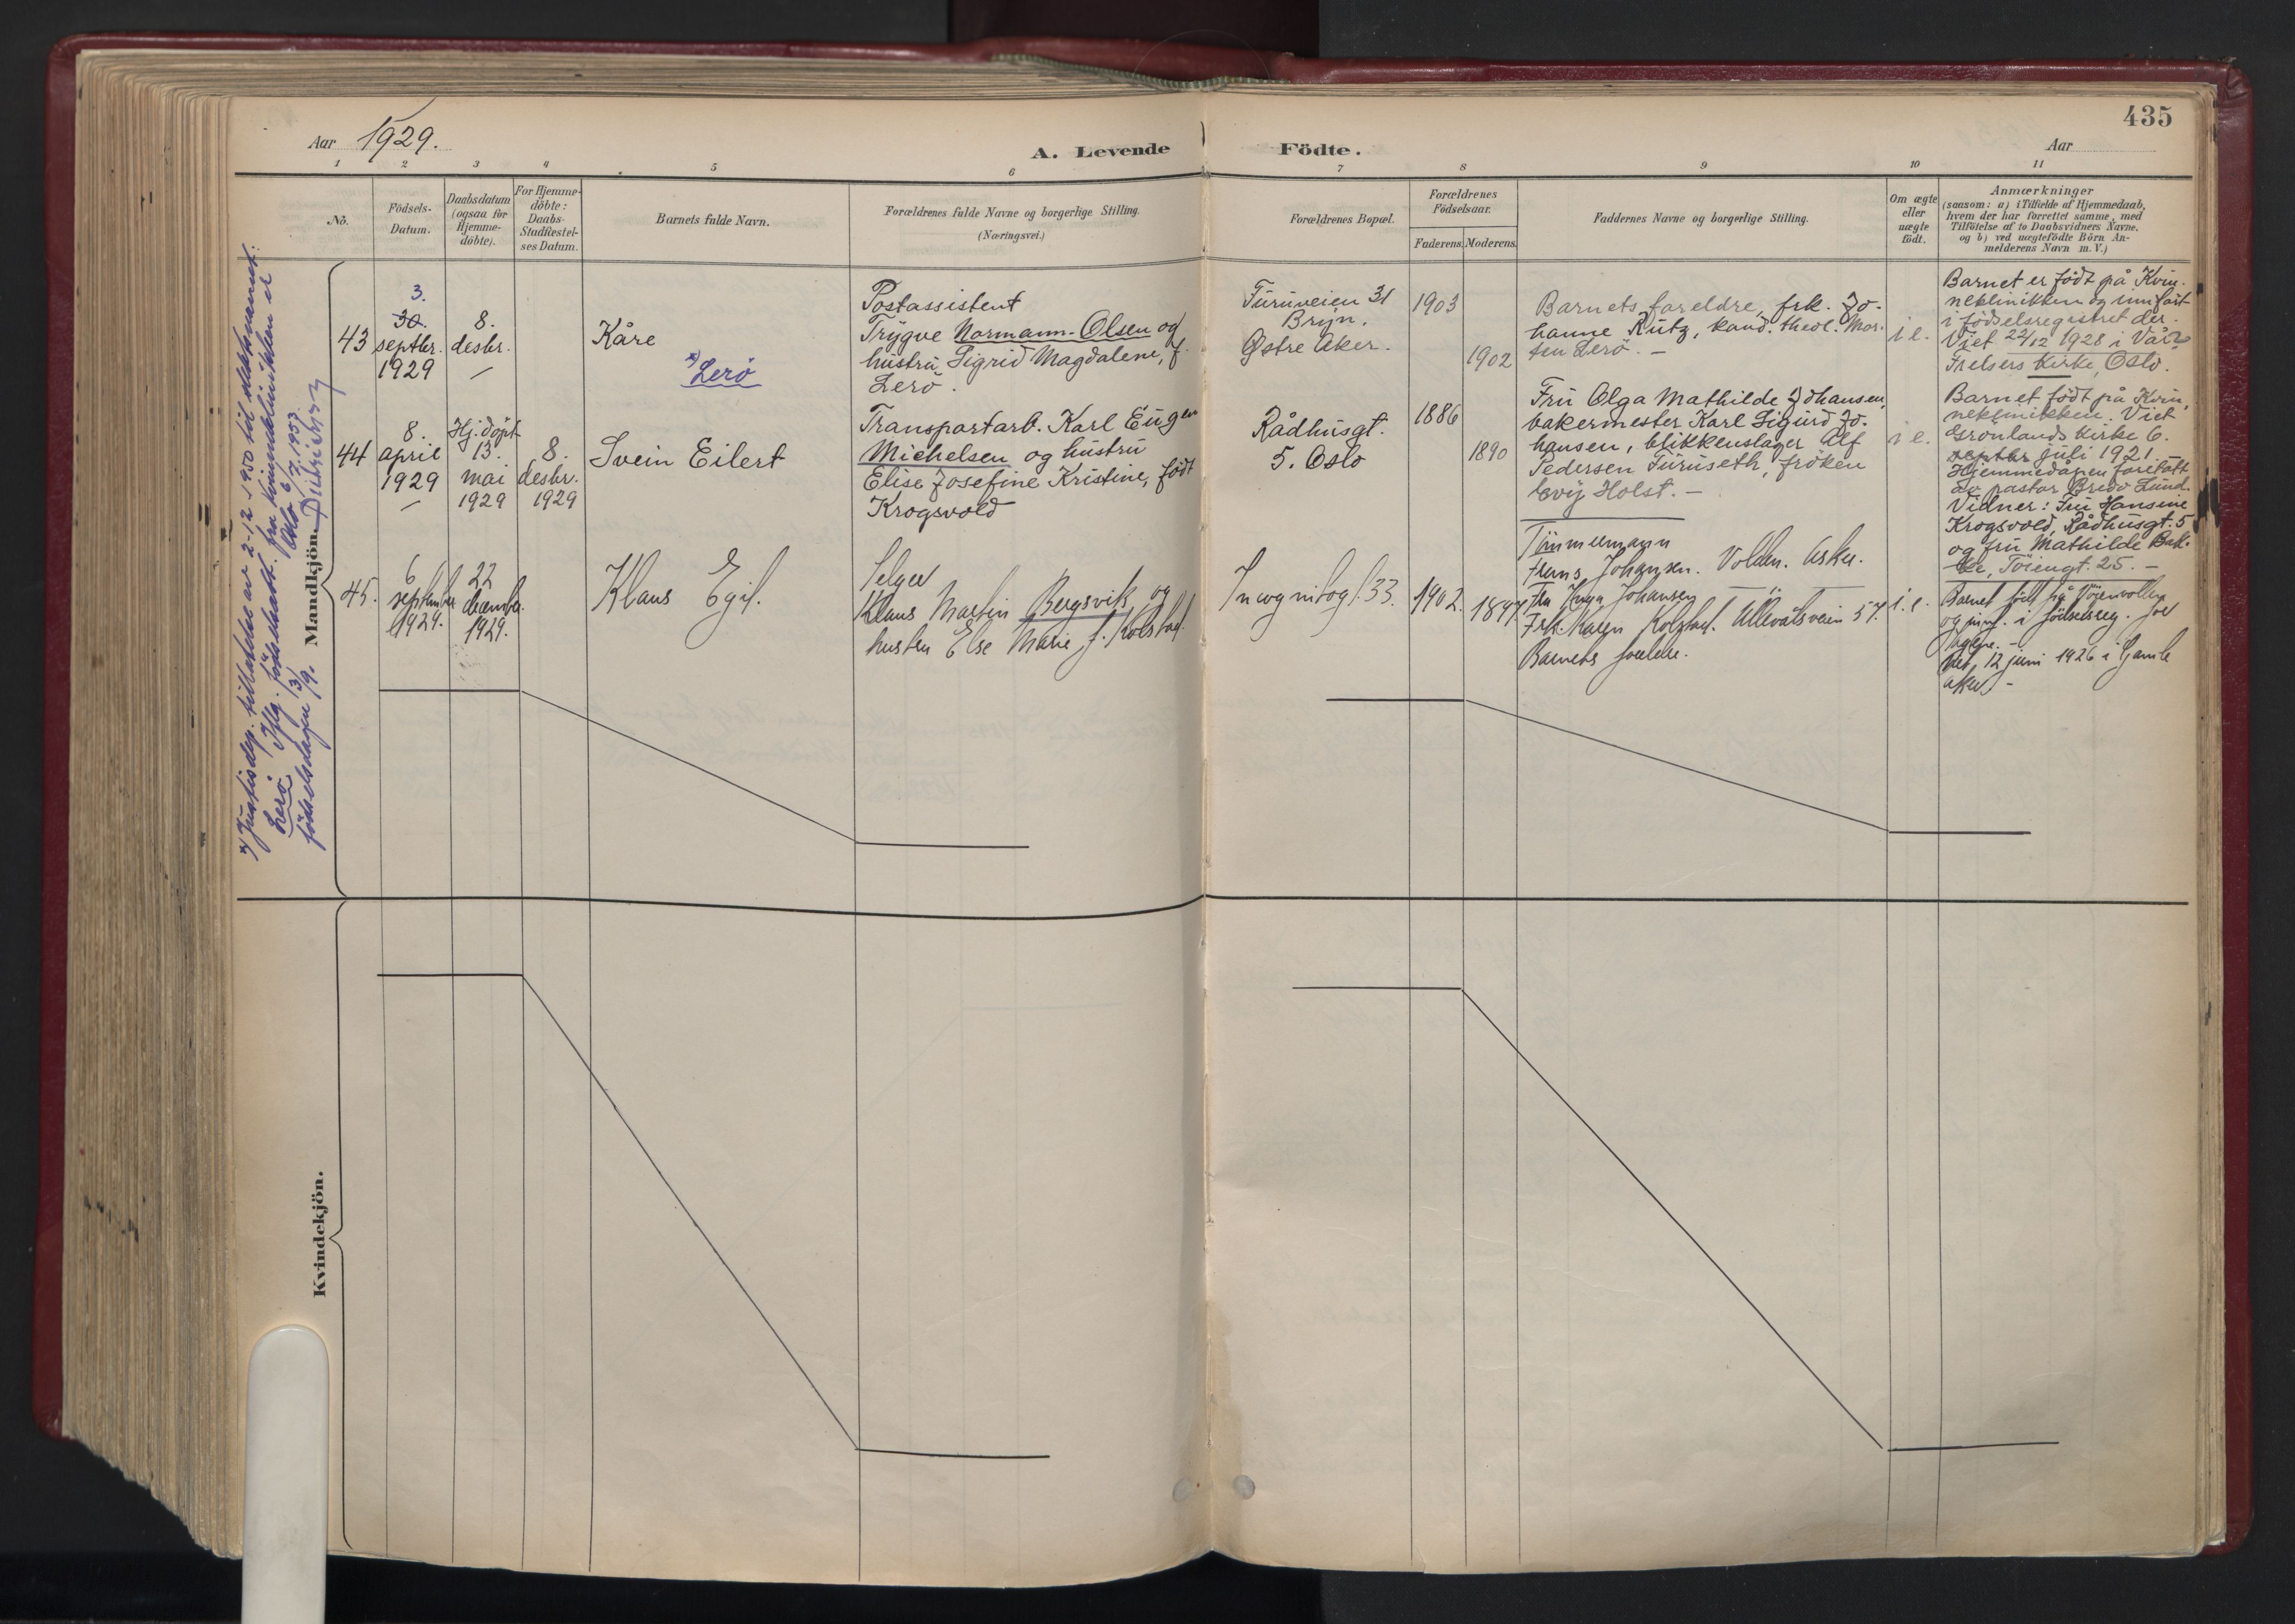 435
Aar 1929.
A. Levende Födte.
Aar
1 2 3 4 5 6 7 8 9 10 11
No.
Födsels-
Datum.
Daabsdatum
(ogsaa for
Hjemme-
döbte).
For Hjemme-
döbte:
Daabs-
Stadfæstel-
ses Datum.
Barnets fulde Navn.
Forældrenes fulde Navne og borgerlige Stilling.
(Næringsvei.)
Forældrenes Bopæl.
Forældrenes
Födselsaar.
Faderens. Moderens.
Faddernes Navne og borgerlige Stilling.
Om ægte
eller
uægte
födt.
Anmærkninger
(saasom: a) i Tilfælde af Hjemmedaab,
hvem der har forrettet samme, med
Tilföielse af to Daabsvidners Navne,
og b) ved uægtefödte Börn An-
melderens Navn m. V.)
Mandkjön.
43
3.
30.
septbr.
1929
8.
desbr.
—
Kåre
*) Lerö
Postassistent
Trygve Normann-Olsen og
hustru Sigrid Magdalene, f.
Lerö.
Furuveien 31
Bryn.
Østre Aker.
1903
1902
Barnets foreldre, frk. Jo-
hanne Rutz, kand. theol. Mor-
ten Lerö. —
i e.
Barnet er født på Kvin-
neklinikken og innført
i fødselsregistret der.
Viet 22/12 1928 i Vår
Frelsers Kirke, Oslo.
44
8.
april
1929
—
Hj. döpt
13.
mai
1929
8.
desbr.
1929
Svein Eilert
Transportarb. Karl Eugen
Michelsen og hustru
Elise Josefine Kristine, født
Krogsvold
Rådhusgt.
5. Oslo
1886
1890
Fru Olga Mathilde Johansen,
bakermester Karl Sigurd Jo-
hansen, blikkenslager Alf
Pedersen Furuseth, frøken
Evy Holst. —
i e.
Barnet født på Kvin-
neklinikken. Viet
Grønlands Kirke 6.
septbr juli 1921. —
Hjemmedåpen foretatt
av pastor Bredo Lund.
Vidner: Fru Hansine
Krogsvold, Rådhusgt. 5
og fru Mathilde Bak-
ke, Töiengt. 25. —
45.
6
september
1929.
22
december
1929.
Klaus Egil.
Selger
Klaus Martin Bergsvik og
hustru Else Marie f. Kolstad.
Incognitogt. 33.
1902.
1897.
Tömmermann
Frans Johansen. Volden. Asker.
Fru Inga Johansen
Frk. Karen Kolstad. Ullevålsveien 57.
Barnets foreldre.
i. e.
Barnet født på
og innf. i födselsreg. for
Viet 12 juni 1926 i Gamle
Aker. —
*) Justisdep. tillatelse av 2-12-1950 til slektsnavnet:
Lerö. Iflg. fødselsatt. fra Kvinneklinikken er
fødselsdagen 3/9. Oslo 6/7. 1953.
Kvindekjön.